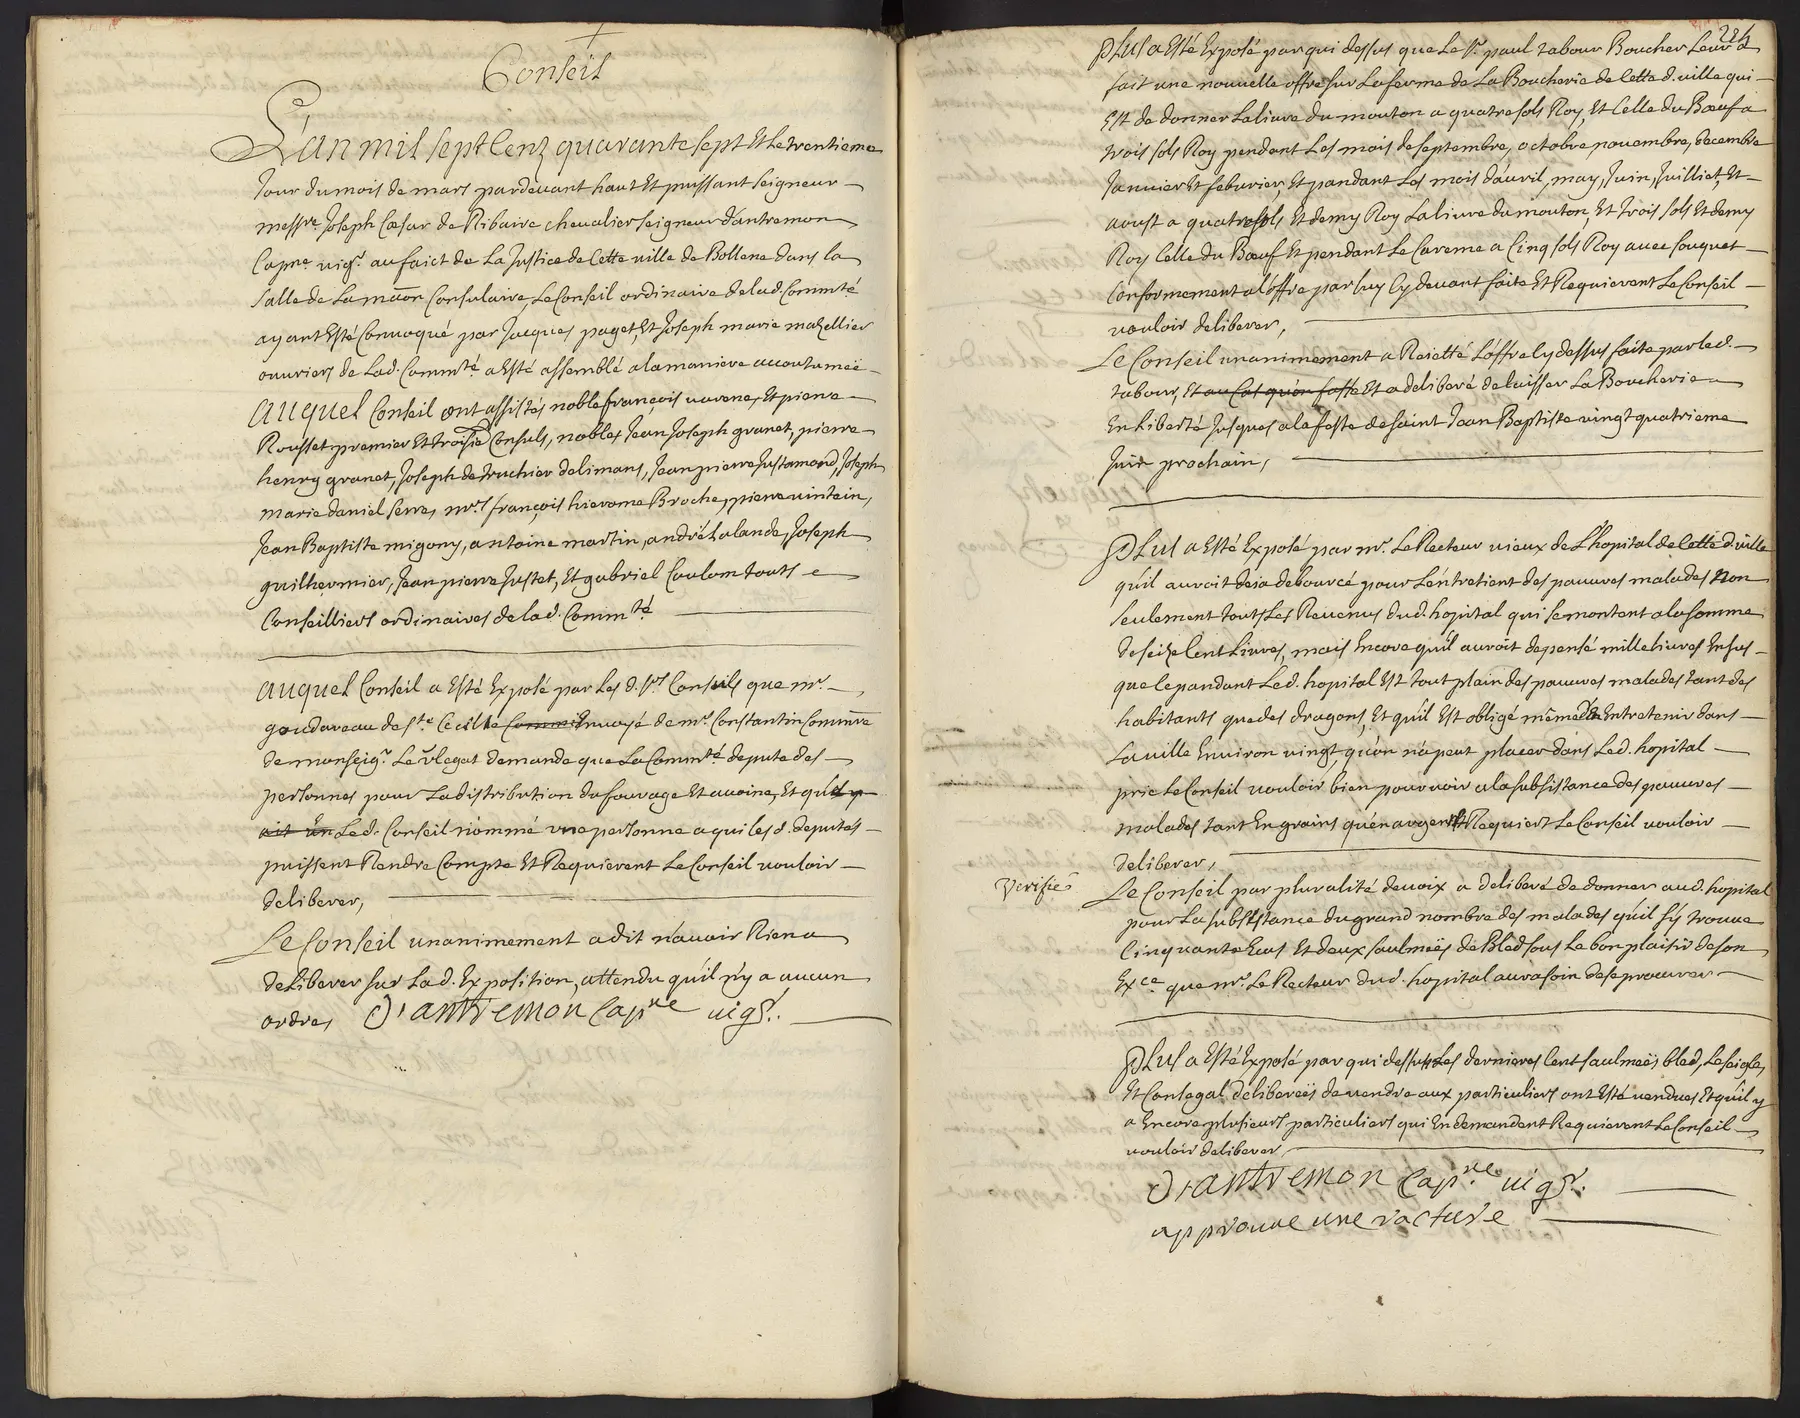 Conseil
L'an mil sept cenz quarante sept et le trentieme
Jour du mois de mars pardevant haut et puissant seigneur
messre Joseph Cæsar de Ribaire chevalier seigneur d'antremon
Capne vigr. au faict de La Justice de Cette ville de Bollene dans la
salle de La maōn Consulaire, Le Conseil ordinaire de lad. Commté
ayant esté Convoqué par Jacques paget, et Joseph marie mazellier
ouvriers de Lad. Commté a esté assemblé a la maniere accoutumeë
Auquel Conseil ont assistés noble françois varene, et pierre
Rousset premier et troisie Consuls, nobles Jean Joseph granet, pierre
henry granet, Joseph de truchier de limans, Jean pierre Justamond, Joseph
marie daniel serre, mrs françois hierome Broche, pierre vintein,
Jean Baptiste migony, antoine martin, andré Lalande, Joseph
guilhermier, Jean pierre Justet, et gabriel Coulom touts
Conseilliers ordinaires de lad. Commté
Auquel Conseil a esté exposé par Les d. srs Consuls que mr.
goudareau de ste Cecille Commis envoyé de mr Constantin Commre
de monseigr Le vlegat demande que La Commté depute des
personnes pour La distribution du fourage et avoine, et quil y
ait un Led. Conseil nommé une personne a qui les d. deputés
puissent Rendre Compte et Requierent Le Conseil vouloir
deliberer,
Le Conseil unanimement a dit n'avoir Rien a
deliberer sur Lad. exposition, attendu qu'il n'y a aucun
ordre, D'antremon Capne vigr.
224
Plus a esté exposé par qui dessus que Le sr. paul tabour Boucher Leur a
fait une nouvelle offre sur La ferme de La Boucherie de Cette d. ville qui
est de donner La livre du mouton a quatre sols Roy, et Celle du Bœuf a
trois sols Roy pendant Les mois de septembre, octobre novembre, decembre
Janvier et febvrier, et pandant Les mois d'avril, may, Juin, Juilliet, et
aoust a quatre sols et demy Roy La livre du mouton, et trois sols et demy
Roy Celle du Bœuf et pendant Le Careme a Cinq sols Roy avec souquet
Conformement a l'offre par luy Cy devant faite et Requierent Le Conseil
vouloir deliberer,
Le Conseil unanimement a Reietté L'offre Cy dessus faite par led.
tabour, et au Cas qu'on fasse et a deliberé de laisser La Boucherie
en Liberté Jusques a la feste de saint Jean Baptiste vingt quatrieme
Juin prochain,
Plus a esté exposé par mr. Le Recteur vieux de L'hopital de Cette d. ville
qu'il auroit deja debourcé pour L'entretient des pauvres malades non
seulement touts Les Revenus dud. hopital qui se montent a la somme
de seize Cent Livres, mais encore qu'il auroit depensé mille livres en sus
que Cepandant Led. hopital est tout plain des pauvres malades tant des
habitants que des dragons, et qu'il est obligé même d'en entretenir dans
La ville environ vingt, qu'on n'a peut placer dans Led. hopital
prie Le Conseil vouloir bien pourvoir a la subsistance des pauvres
malades tant en grains qu'en argent et Requiert Le Conseil vouloir
deliberer,
Verifié
Le Conseil par pluralité de voix a deliberé de donner aud. hopital
pour La subsistance du grand nombre des malades qu'il s'y trouve
Cinquante Ecus et deux saulmeës de Bled sous Le bon plaisir de son
Exce que mr. Le Recteur dud. hopital aura soin de se procurer
Plus a esté exposé par qui dessus Les dernieres Cent saulmeës bled, Le seigle,
et Consegal delibereës de vendre aux particuliers ont esté vendues et qu'il y
a encore plusieurs particuliers qui en demandent Requierent Le Conseil
vouloir deliberer
D'antremon Capne vigr.
approuve une racture